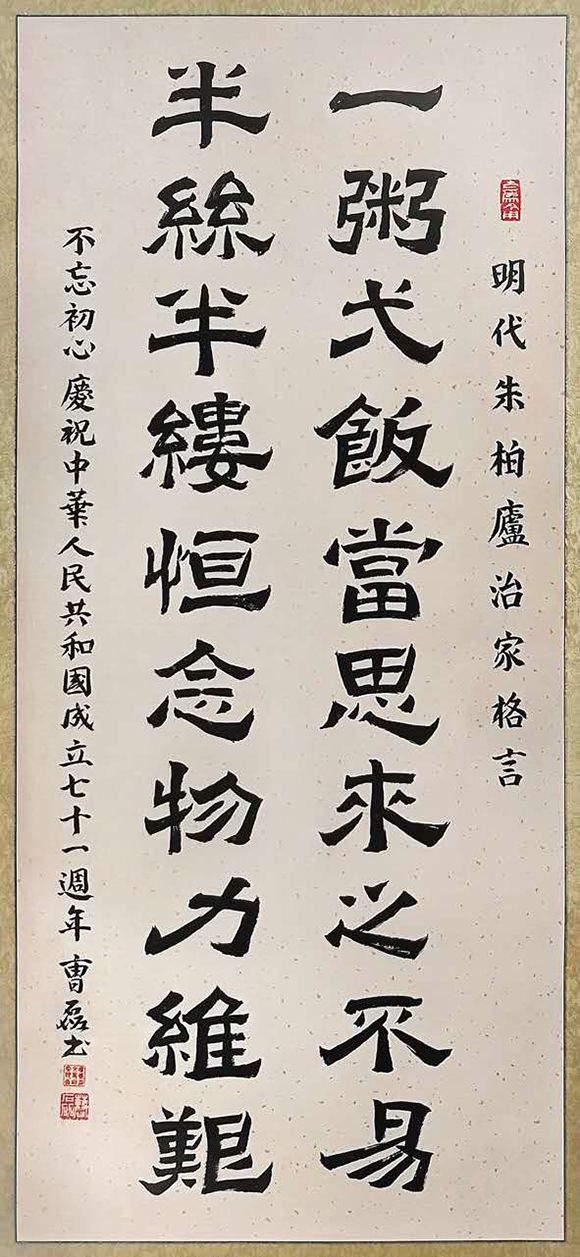 明代朱柏廬治家格言
一粥弋飯當思來之不易
半絲半縷恒念物力維艱
不忘初心 慶祝中華人民共和國成立七十一週年 曹磊书